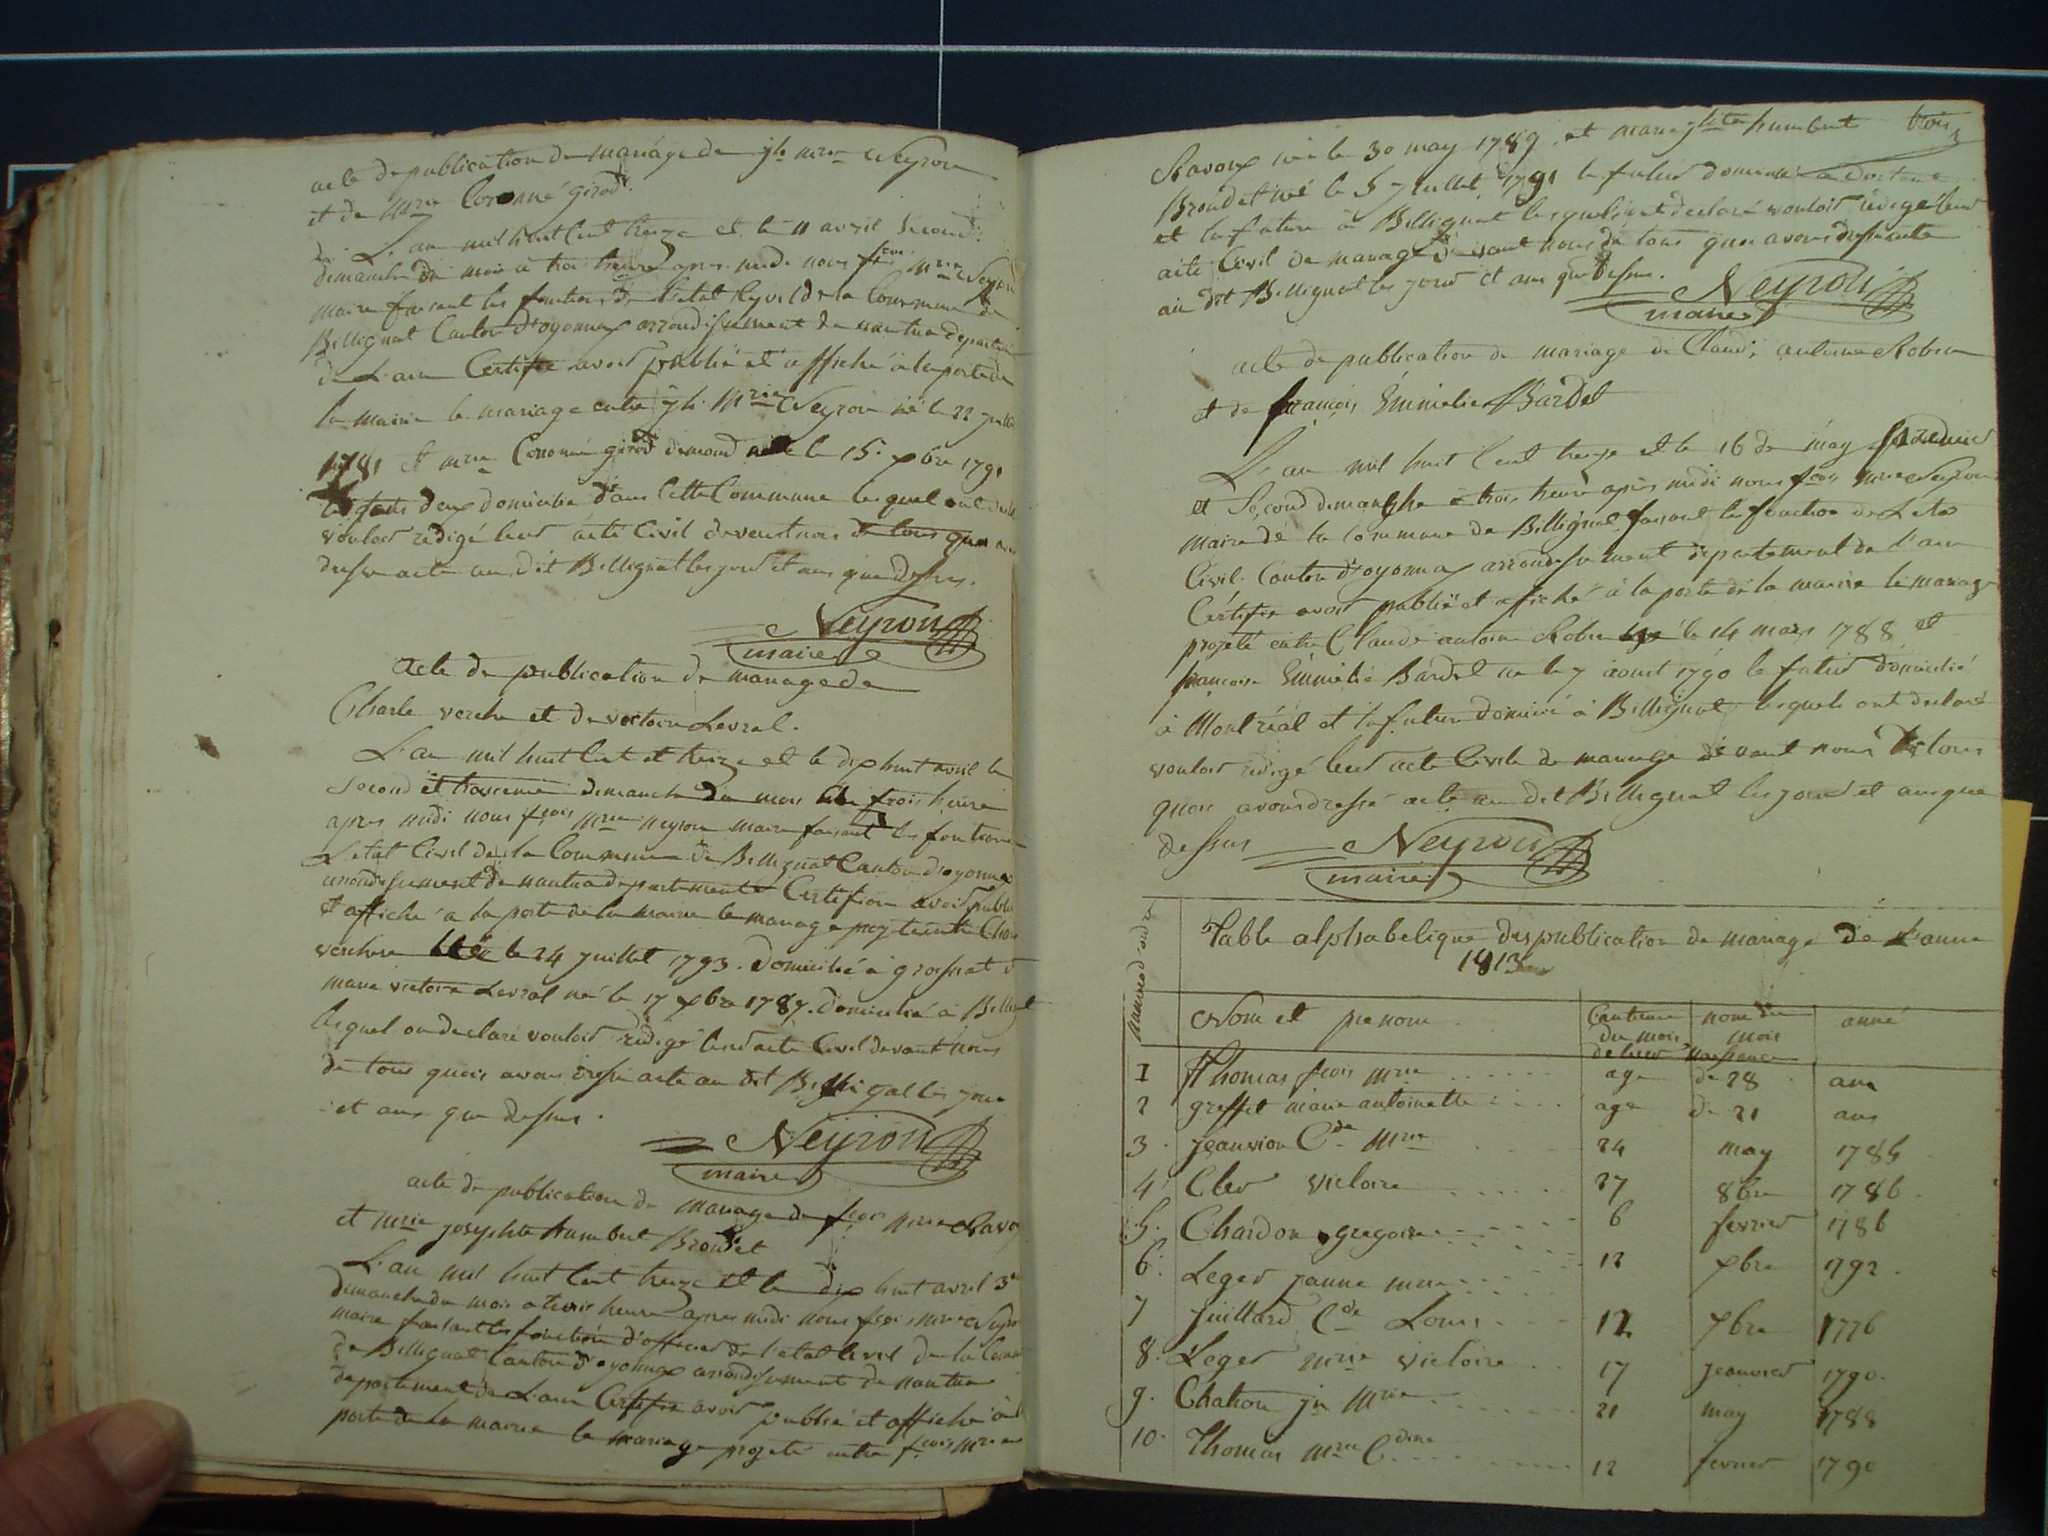 acte de publication de mariage de jh mrie Neyron
et de mrie Coronné girod.
L'an mil huit Cent treize et le 11 avril second
dimanche du mois à trois heure apres midi nous fcois mrie Neyron
maire faisant les fonctions de l'etat Cyvil de la Commune de
Bellignat Canton d'oyonnax arrondissement de nantua departem
de L'ain Certifie avoir publié et affiché à la porte de
la mairie le mariage entre jh mrie Neyron né le 22 juillet
1781 et mrie Coronné girod née le 15 xbre 1791
tous deux domicilié dans Cette Commune lesquel ont
vouloir redigé leur acte Civil devant nous de tous quoi
dressé acte au dit Bellignat les jour et ans que dessus.
Neyron
maire
Acte de publication de mariage de
Charle verchere et de victoire Levrat.
L'an mil huit Cent et treize et le dix huit avril le
second et troisieme dimanche du mois à trois heure
apres midi nous fcois mrie neyron maire faisant les fontions
L'etat Civil de la Commune de Bellignat Canton d'oyonnax
arrondissement de nantua departement Certifion avoir publié
et affiché à la porte de la mairie le mariage projté entre Char
verchere né le 24 juillet 1793. domicilié à groissiat et
marie victoire Levrat né le 17 xbre 1787. domicilié à Bellignat
lesquel on declaré vouloir redigé leur acte Civil devant nous
de tous quois avons dressé acte au dit Bellignat les jour
et ans que dessus.
Neyron
maire
acte de publication de mariage de fcois mrie Ravoux
et mrie josephte humbert Broudet
L'an mil huit Cent treize et le dix huit avril 3e
dimanche du mois a trois heure apres midi nous fcois mrie Neyron
maire faisant les fonction d'officier de l'etat Civil de la Comm
de Bellignat Canton d'oyonnax arrondissement de nantua
departement de L'ain Certifie avoir publié et affiché à la
porte de la mairie le mariage projeté entre fcois mrie
Ravoux né le 30 may 1789 et marie jhte humbert trois
Broudet né le 5 juillet 1791 le futur domicilié à dortant
et la future à Bellignat lesquels ont declaré vouloir redigé leur
acte Civil de mariage devant nous de tous quoi avons dressé acte
au dit Bellignat les jour et ans que dessus.
Neyron
maire
acte de publication de mariage de Claude antoine Robin
et de françoise Emmelie Bardet
L'an mil huit Cent treize et le 16 de may premier
et Second dimanche à trois heure après midi nous fcois mrie Neyron
maire de la Commune de Bellignat faisant la fonction de L'etat
Civil Canton d'oyonnax arrondissement departement de l'ain
Certifie avoir publié et affiché à la porte de la mairie le mariage
projeté entre Claude antoine Robin né le 14 mars 1788 et
françoise Emmelié Bardet né le 7 aoust 1790 le futur domicilié
à Montréal et la future domicié à Bellignat lesquels ont declaré
vouloir redigé leur acte Civile de mariage devant nous De tous
quois avons dressé acte au dit Bellignat les jour et ans que
dessus
Neyron
maire
Table alphabetique des publication de mariage de L'année
1813
numero d'ordre Nom et prenom Cantieme du mois de leur naissance nom du mois anné
1 Thomas fcois mrie age de 28 ans
2 greffet marie antoinette age de 21 ans
3 jeanvion Cde mrie 24 may 1785
4 Cler victoire 27 8bre 1786
5. Chardon gregoire 6 fevrier 1786
6. Leger janne mrie 12 xbre 1792.
7 juillard Cde Louis 12 7bre 1776
8. Leger mrie victoire 17 jeanvier 1790.
9. Chatton jn mrie 21 may 1788
10. Thomas mrie Cdine 12 fevrier 1790